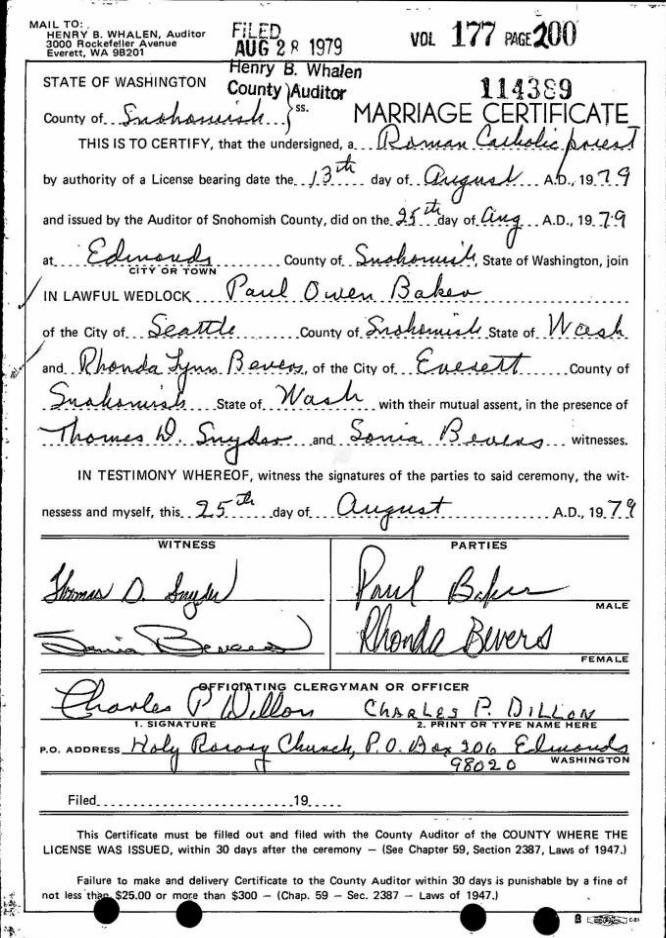 MAIL TO:
HENRY B. WHALEN, Auditor
3000 Rockefeller Avenue
Everett, WA 98201
FILED
AUG 28 1979
Henry B. Whalen
County Auditor
VOL 177 PAGE 200
114389
STATE OF WASHINGTON
County of Snohomish } ss.
MARRIAGE CERTIFICATE
THIS IS TO CERTIFY, that the undersigned, a Roman Catholic priest
by authority of a License bearing date the 13th day of August A.D., 1979
and issued by the Auditor of Snohomish County, did on the 25th day of Aug A.D., 1979
at Edmonds County of Snohomish, State of Washington, join
CITY OR TOWN
IN LAWFUL WEDLOCK Paul Owen Baker
of the City of Seattle County of Snohomish State of Wash
and Rhonda Lynn Bevers, of the City of Everett County of
Snohomish State of Wash with their mutual assent, in the presence of
Thomas D. Snyder and Sonia Bevers witnesses.
IN TESTIMONY WHEREOF, witness the signatures of the parties to said ceremony, the wit-
nessess and myself, this 25th day of August A.D., 1979
WITNESS
PARTIES
Thomas D. Snyder
Paul Baker
MALE
Sonia Bevers
Rhonda Bevers
FEMALE
OFFICIATING CLERGYMAN OR OFFICER
Charles P Dillon CHARLES P. DILLON
1. SIGNATURE 2. PRINT OR TYPE NAME HERE
P.O. ADDRESS Holy Rosary Church, P.O. Box 206 Edmonds
98020 WASHINGTON
Filed 19
This Certificate must be filled out and filed with the County Auditor of the COUNTY WHERE THE
LICENSE WAS ISSUED, within 30 days after the ceremony — (See Chapter 59, Section 2387, Laws of 1947.)
Failure to make and delivery Certificate to the County Auditor within 30 days is punishable by a fine of
not less than $25.00 or more than $300 — (Chap. 59 — Sec. 2387 — Laws of 1947.)